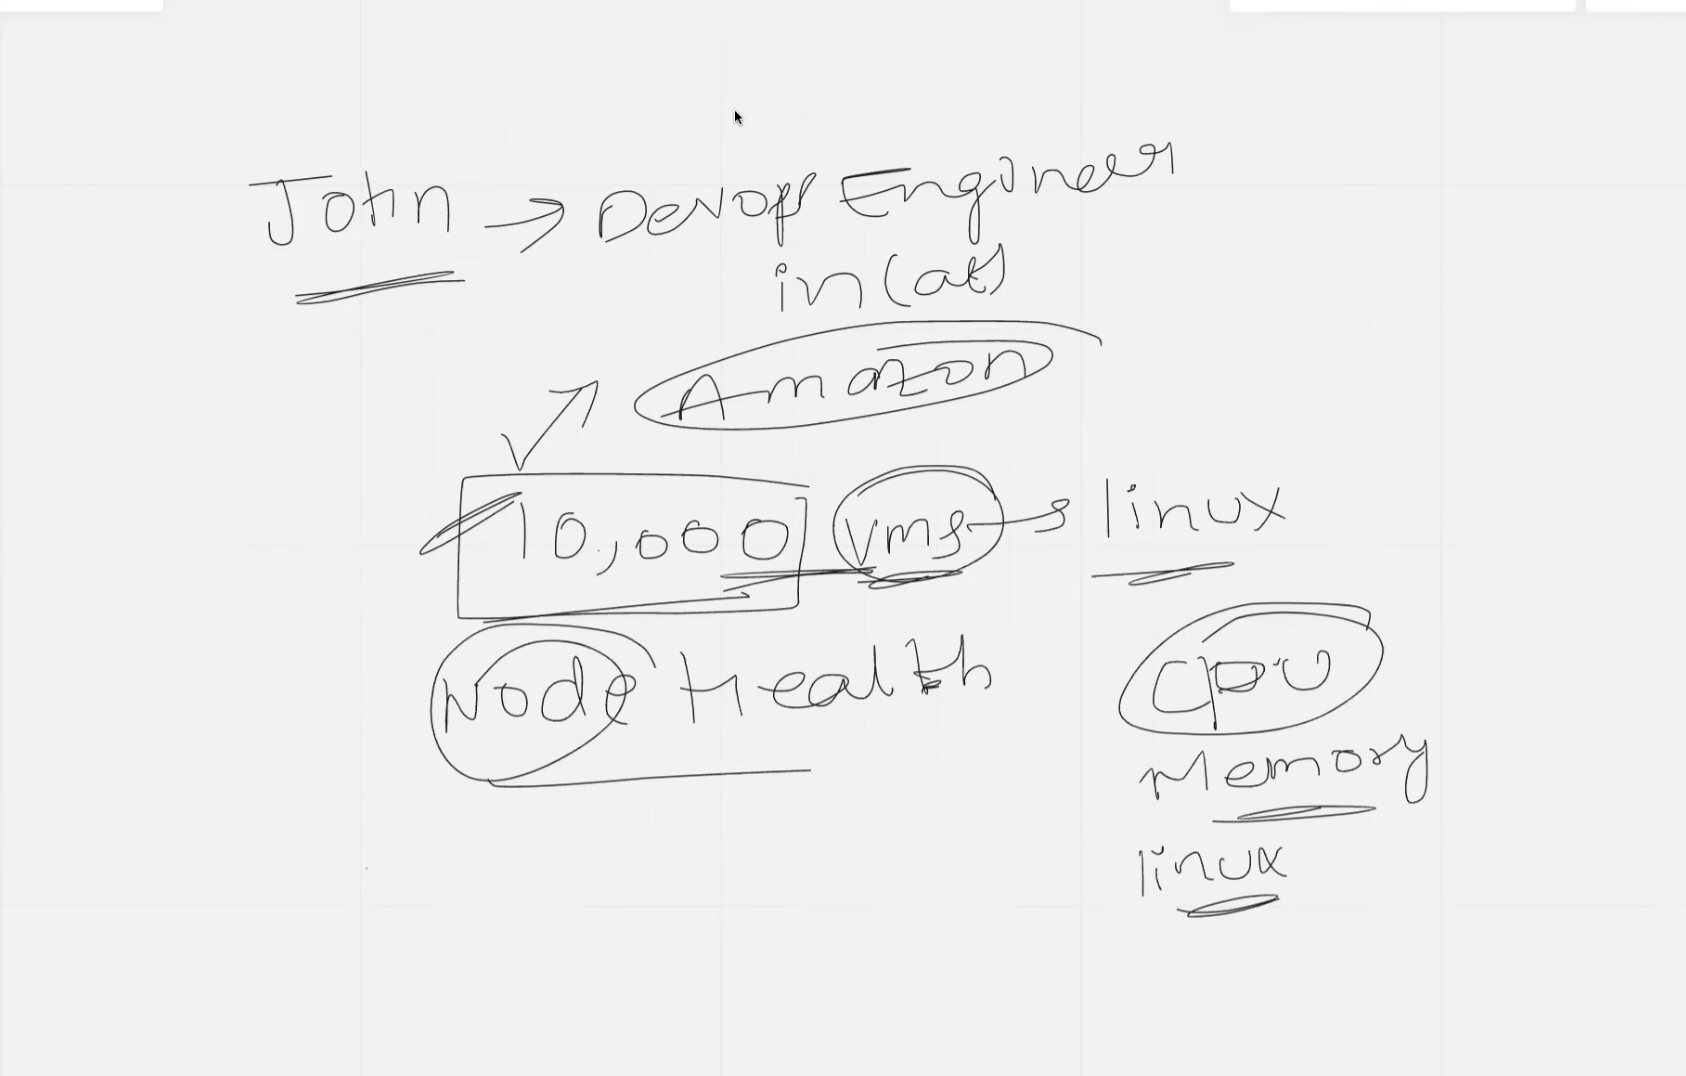 John → Devops Engineer
in (at)
Amazon
10,000 vms → linux
Node Health
CPU
Memory
linux